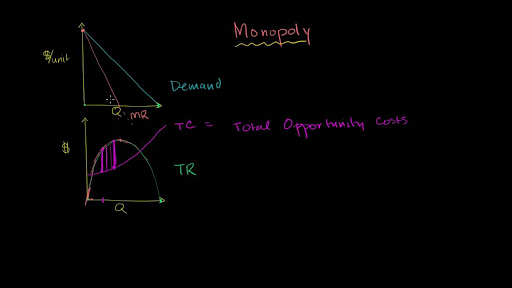 Monopoly
$/unit
Demand
Q
MR
TC = Total Opportunity Costs
$
TR
Q